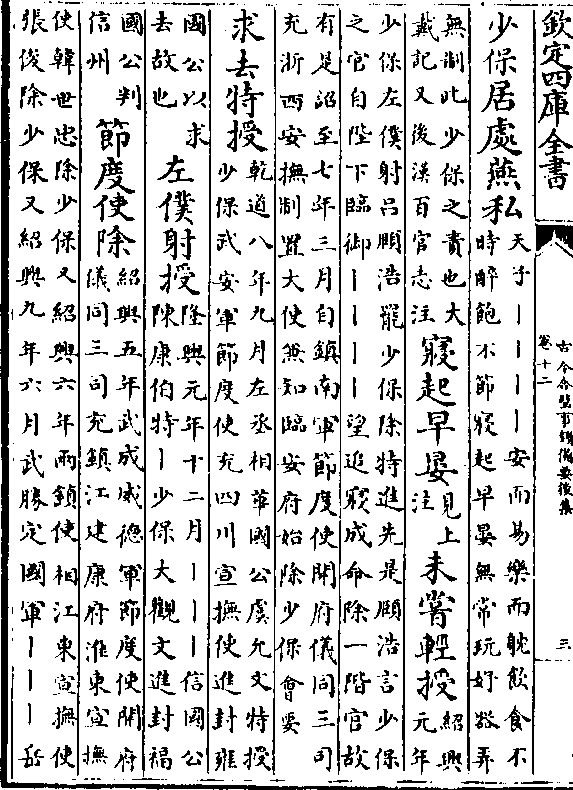 欽定四庫全書
古今合璧事類備要後集
卷十二
三
少保居處燕私 天子丨丨丨丨安而易樂而躭飲食不
時醉飽不節寢起早晏無常玩好器弄
無制此少保之責也大
戴記又後漢百官志注
寢起早晏 見上
注
未嘗輕授 紹興
元年
少保左僕射吕頤浩罷少保除特進先是頤浩言少保
之官自陛下臨御丨丨丨丨望追寢成命除一階官故
有是詔至七年三月自鎮南軍節度使開府儀同三司
充浙西安撫制置大使兼知臨安府始除少保會要
求去特授 乾道八年九月左丞相華國公虞允文特授
少保武安軍節度使充四川宣撫使進封雍
國公以求
去故也
左僕射授 隆興元年十二月丨丨丨信國公
陳康伯特丨少保大觀文進封福
國公判
信州
節度使除 紹興五年武成威德軍節度使開府
儀同三司充鎮江建康府淮東宣撫
使韓世忠除少保又紹興六年兩鎮使相江東宣撫使
張俊除少保又紹興九年六月武勝定國軍丨丨丨岳